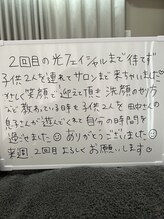 2回目の光フェイシャルまで待てず
子供2人を連れてサロンまで来ちゃいました♡
忙しく笑顔で迎えて頂き洗顔のやり方
って教わっている時も子供2人を田中さんの
息子さんが遊んでくれて自分の時間を
過ごせました☺ ありがとうございました☺
来週、2回目よろしくお願いします☺